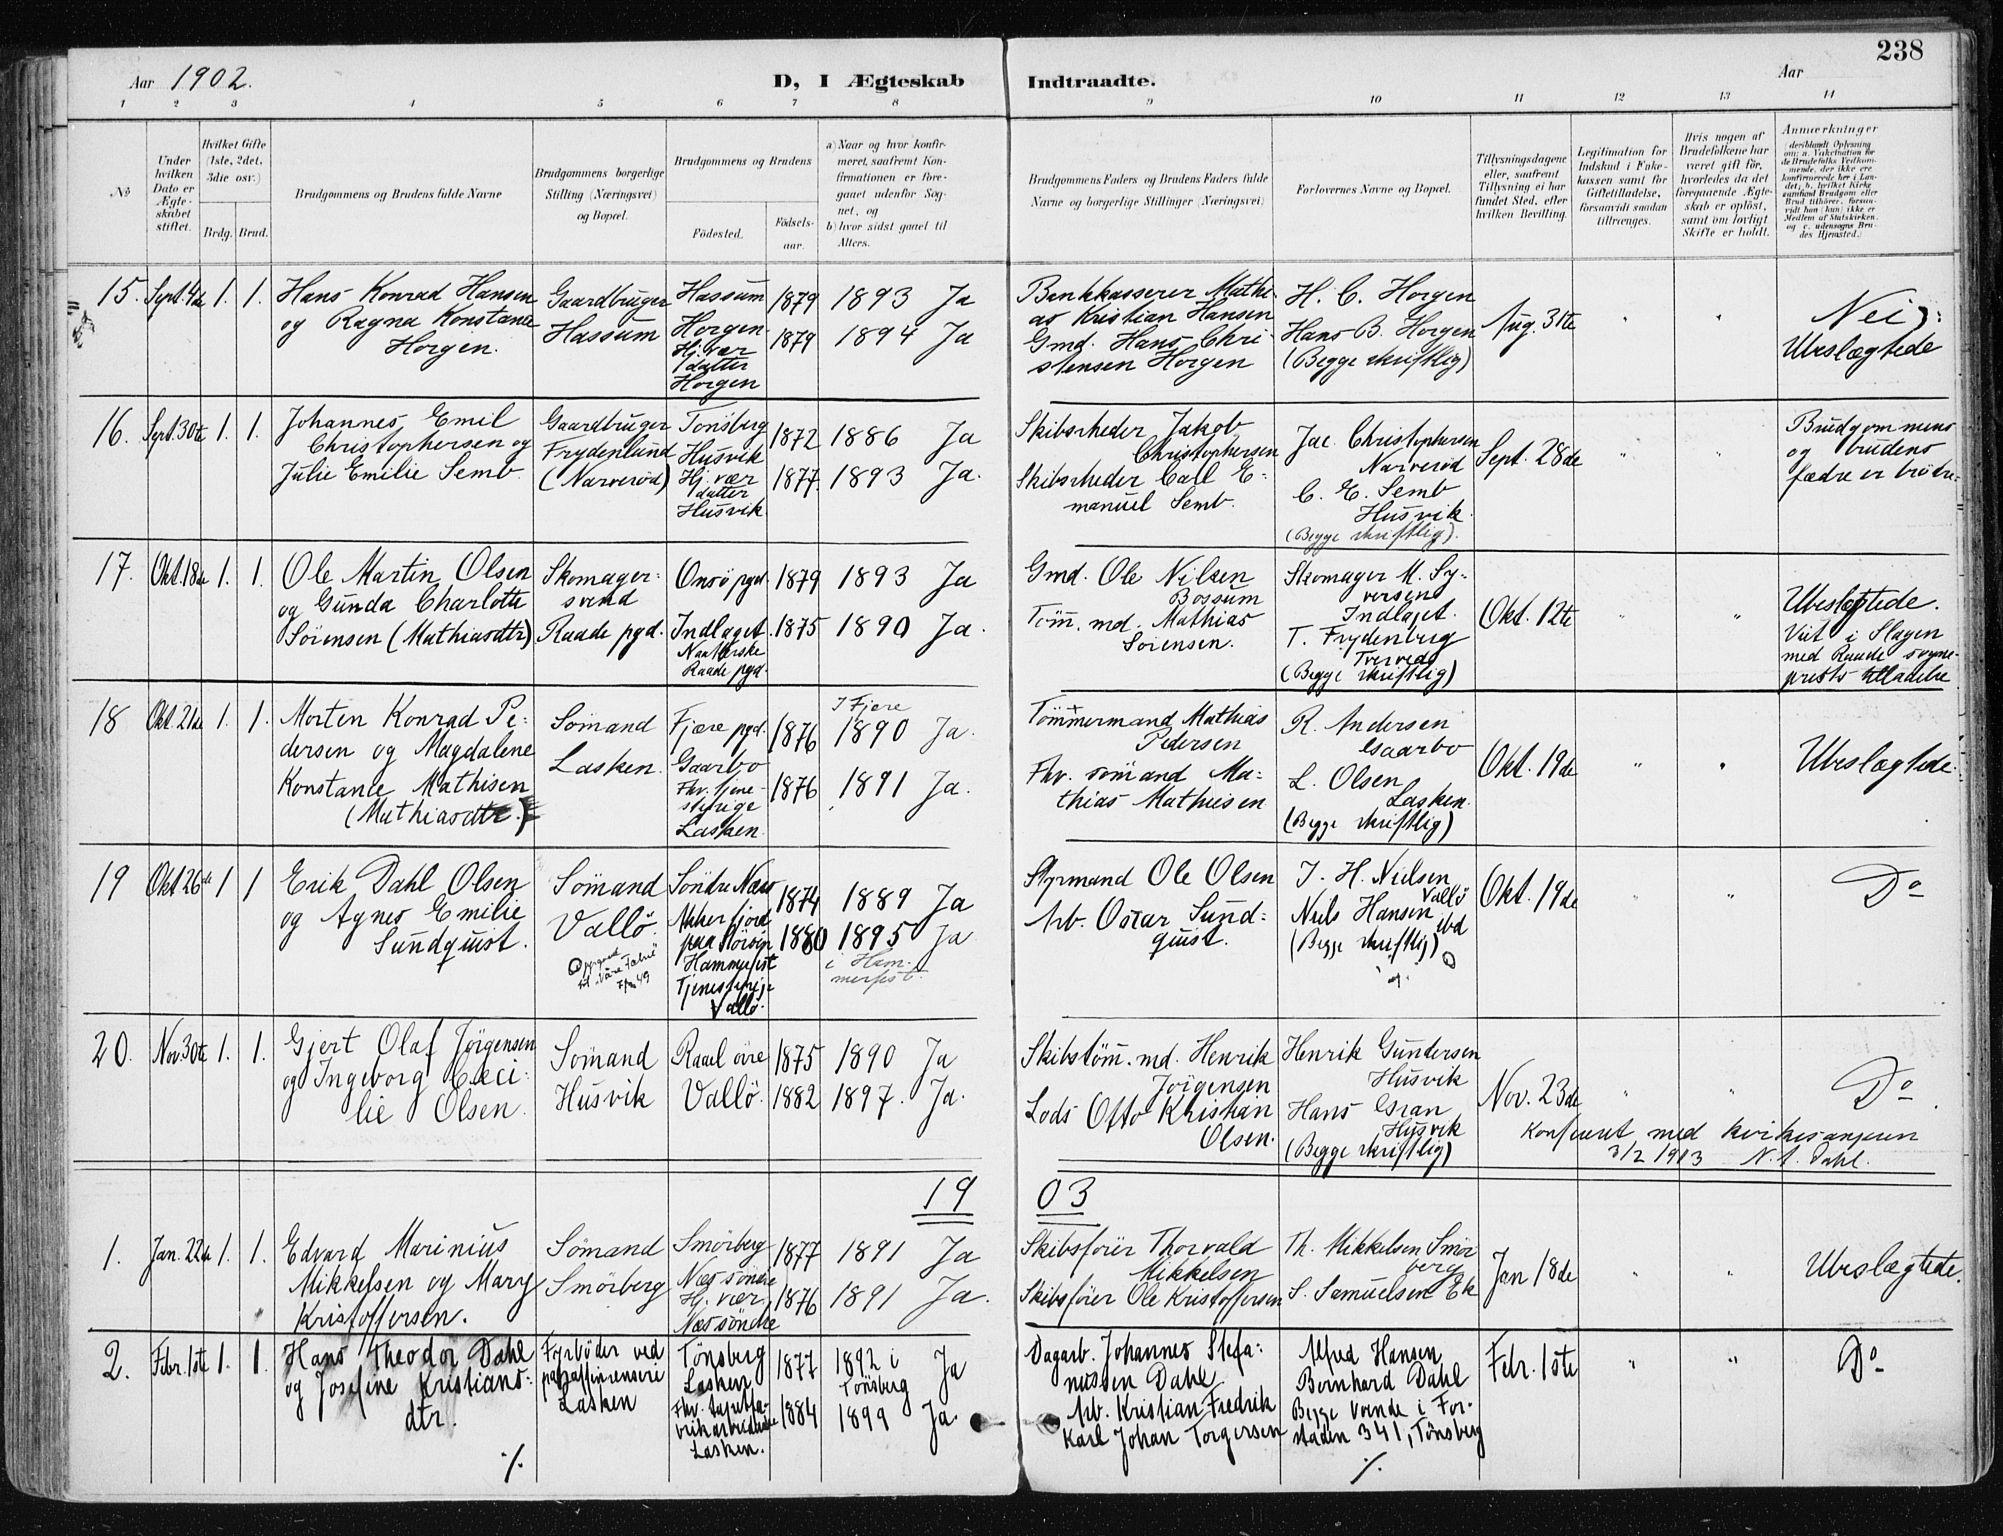 238
Aar 1902. D, I Ægteskab Indtraadte. Aar
1 2 3 4 5 6 7 8 9 10 11 12 13 14
No
Under hvilken Dato er Ægteskabet stiftet.
Hvilket Gifte (1ste, 2det, 3die osv.)
Brdg. Brud.
Brudgommens og Brudens fulde Navne
Brudgommens borgerlige Stilling (Næringsvei) og Bopæl.
Brudgommens og Brudens
Fødested.
Fødselsaar.
a) Naar og hvor konfirmeret, saafremt Konfirmationen er foregaaet udenfor Sognet, og
b) hvor sidst gaaet til Alters.
Brudgommens Faders og Brudens Faders fulde Navne og borgerlige Stillinger (Næringsvei)
Forlovernes Navne og Bopæl.
Tillysningsdagene eller, saafremt Tillysning ei har fundet Sted, efter hvilken Bevilling.
Legitimation for Indskud i Enkekassen samt for Giftetilladelse, forsaavidt saadan tiltrænges.
Hvis nogen af Brudefolkene har været gift før, hvorledes da det foregaaende Ægteskab er opløst, samt om lovligt Skifte er holdt.
Anmærkninger
15. Sept. 4de 1. 1.
Hans Konrad Hansen
og Ragna Konstance
Horgen.
Gaardbruger
Hassum
Hassum
Horgen
Hj. vær.
datter
Horgen
1879
1879
1893 Ja
1894 Ja
Bankkasserer Mathi-
as Kristian Hansen
Gmd. Hans Chri-
stensen Horgen
H. C. Horgen
Hans B. Horgen
(Begge skriftlig)
Aug. 31te " "
Nei:
Ubeslægtede
16. Sept. 30te 1. 1.
Johannes Emil
Christophersen og
Julie Emilie Semb.
Gaardbruger
Frydenlund
(Narverød)
Tønsberg
Husvik
Hj. vær
datter
Husvik.
1872
1877.
1886 Ja
1893 Ja.
Skibsrheder Jakob
Christophersen
Skibsrheder Carl E-
manuel Semb.
Jac. Christophersen
Narverød
C. E. Semb
Husvik.
(Begge skriftlig).
Sept. 28de " "
Brudgommens
og brudens
fædre er brødre.
17. Okt. 18de 1. 1.
Ole Martin Olsen
og Gunda Charlotte
Sørensen (Mathiasdtr)
Skomager-
svend
Raade pgd.
Onsø pgd.
Indlaget
Raade pgd.
1879
1875
1893 Ja
1890 Ja.
Gmd. Ole Nilsen
Bossum
Tøm. md. Mathias
Sørensen.
Skomager M. Sy-
versen
Indlaget.
T. Frydenberg
Tverved
(Begge skriftlig)
Okt. 12te " "
Ubeslægtede.
Viet i Slagen
med Raade sogne-
prests tilladelse
18 Okt. 21de 1. 1.
Morten Konrad Pe-
dersen og Magdalene
Konstance Mathisen
(Mathiasdtr.)
Sømand
Lasken.
Fjære pgd.
Gaarbo
Fhv. tjene-
stepige
Lasken.
1876
1876
I Fjære
1890 Ja.
1891 Ja.
Tømmermand Mathias
Pedersen
Fhv. sømand Ma-
thias Mathiesen
R. Andersen
Gaarbo
L. Olsen
Lasken.
(Begge skriftlig)
Okt. 19de " "
Ubeslægtede.
19 Okt 26de 1 1
Erik Dahl Olsen
og Agnes Emilie
Sundquist.
Sømand
Vallø.
Søndre Næs
Hammerfest
Tjenestepige
Vallø.
1874
1880
1889 Ja
1895 Ja
i Ham-
merfest.
Styrmand Ole Olsen
Arb. Oscar Sund-
quist.
J. H. Nielsen
Vallø
Niels Hansen ibd
(Begge skriftlig)
Okt. 19de " "
Do
20. Nov. 30te 1. 1.
Gjert Olaf Jørgensen
og Ingeborg Ceci-
lie Olsen.
Sømand
Husvik
Raael øvre
Vallø.
1875
1882
1890 Ja
1897. Ja.
Skibstøm. md. Henrik
Jørgensen
Lods Otto Kristian
Olsen.
Henrik Gundersen
Husvik
Hans Gran
Husvik
(Begge skriftlig)
Nov. 23de " "
Do
Konfereret med kirkesangeren
3/2 1903 N. A. Dahl.
1903
1. Jan. 22de 1. 1.
Edvard Marinius
Mikkelsen og Mary
Kristoffersen.
Sømand
Smørberg
Smørberg
Næs søndre
Hj. vær.
Næs søndre
1877
1876
1891 Ja
1891 Ja.
Skibsfører Thorvald
Mikkelsen
Skibsfører Ole Kristoffersen
Th. Mikkelsen Smør
berg
S. Samuelsen Ek
Jan 18de " "
Ubeslægtede.
2. Febr. 1ste 1. 1.
Hans Theodor Dahl
og Josefine Kristians-
dtr.
Fyrbøder ved
paraffinrenseri
Lasken
Tønsberg
Lasken
Lasken.
1877
1884
1892 i Ja
Tønsberg
1899 Ja.
Dagarb. Johannes Stefa-
nussen Dahl.
Arb. Kristian Fredrik
Karl Johan Torgersen
Alfred Hansen
Bernhard Dahl
Begge boende i For-
staden 341, Tønsberg
Febr. 1ste " "
Do
./. ./.